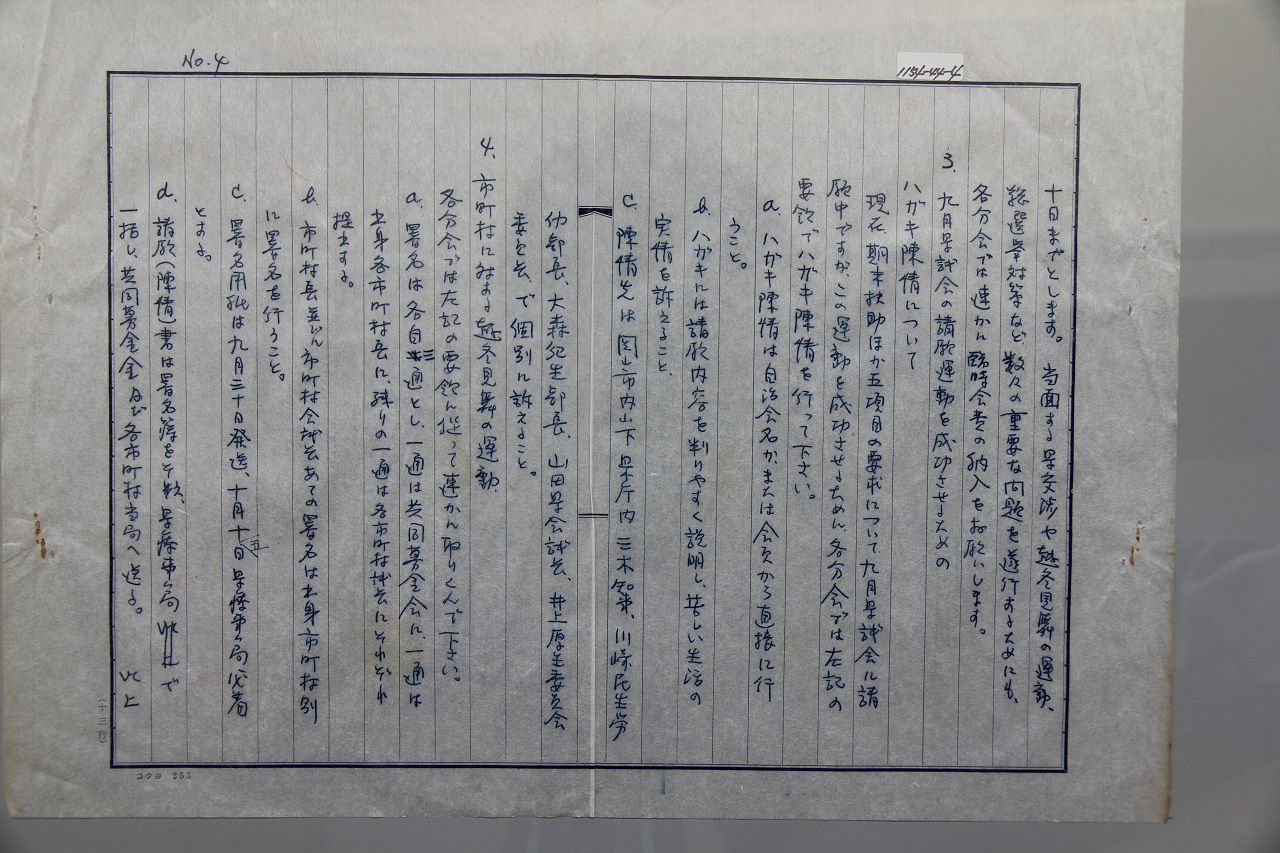 No.4
1154-44-4
十日までとします。当面する県交渉や越冬見舞の運動、
総選挙対策など、数々の重要な問題を遂行するためにも、
各分会では速かに臨時会費の納入をお願いします。
3. 九月県議会の請願運動を成功させるための
ハガキ陳情について
現在、期末扶助ほか五項目の要求について、九月県議会に請
願中ですが、この運動を成功させるために、各分会では左記の
要領でハガキ陳情を行って下さい。
a. ハガキ陳情は自治会名かまたは会員から直接に行
うこと。
b. ハガキには請願内容を判りやすく説明し、苦しい生活の
実情を訴えること、
c. 陳情先は岡山市内山下 県庁内 三木知事、川崎民生労
仂部長、大森紀生部長、山田県会議長、井上厚生委員会
委員長、で個別に訴えること。
4. 市町村に対する越冬見舞の運動、
各分会では左記の要領に従って速かに取りくんで下さい。
a. 署名は各自三通とし、一通は共同募金会に、一通は
出身各市町村長に、残りの一通は各市町村議長にそれぞれ
提出する。
b. 市町村長並びに市町村会議長あての署名は出身市町村別
に署名を行うこと。
c. 署名用紙は九月三十日発送、十月十五日県療事ム局必着
とする。
d. 請願(陳情)書は署名簿をそえ、県療事ム局 で
一括し、共同募金会及び各市町村当局へ送る。 以上
(十三行)
コクヨ 253